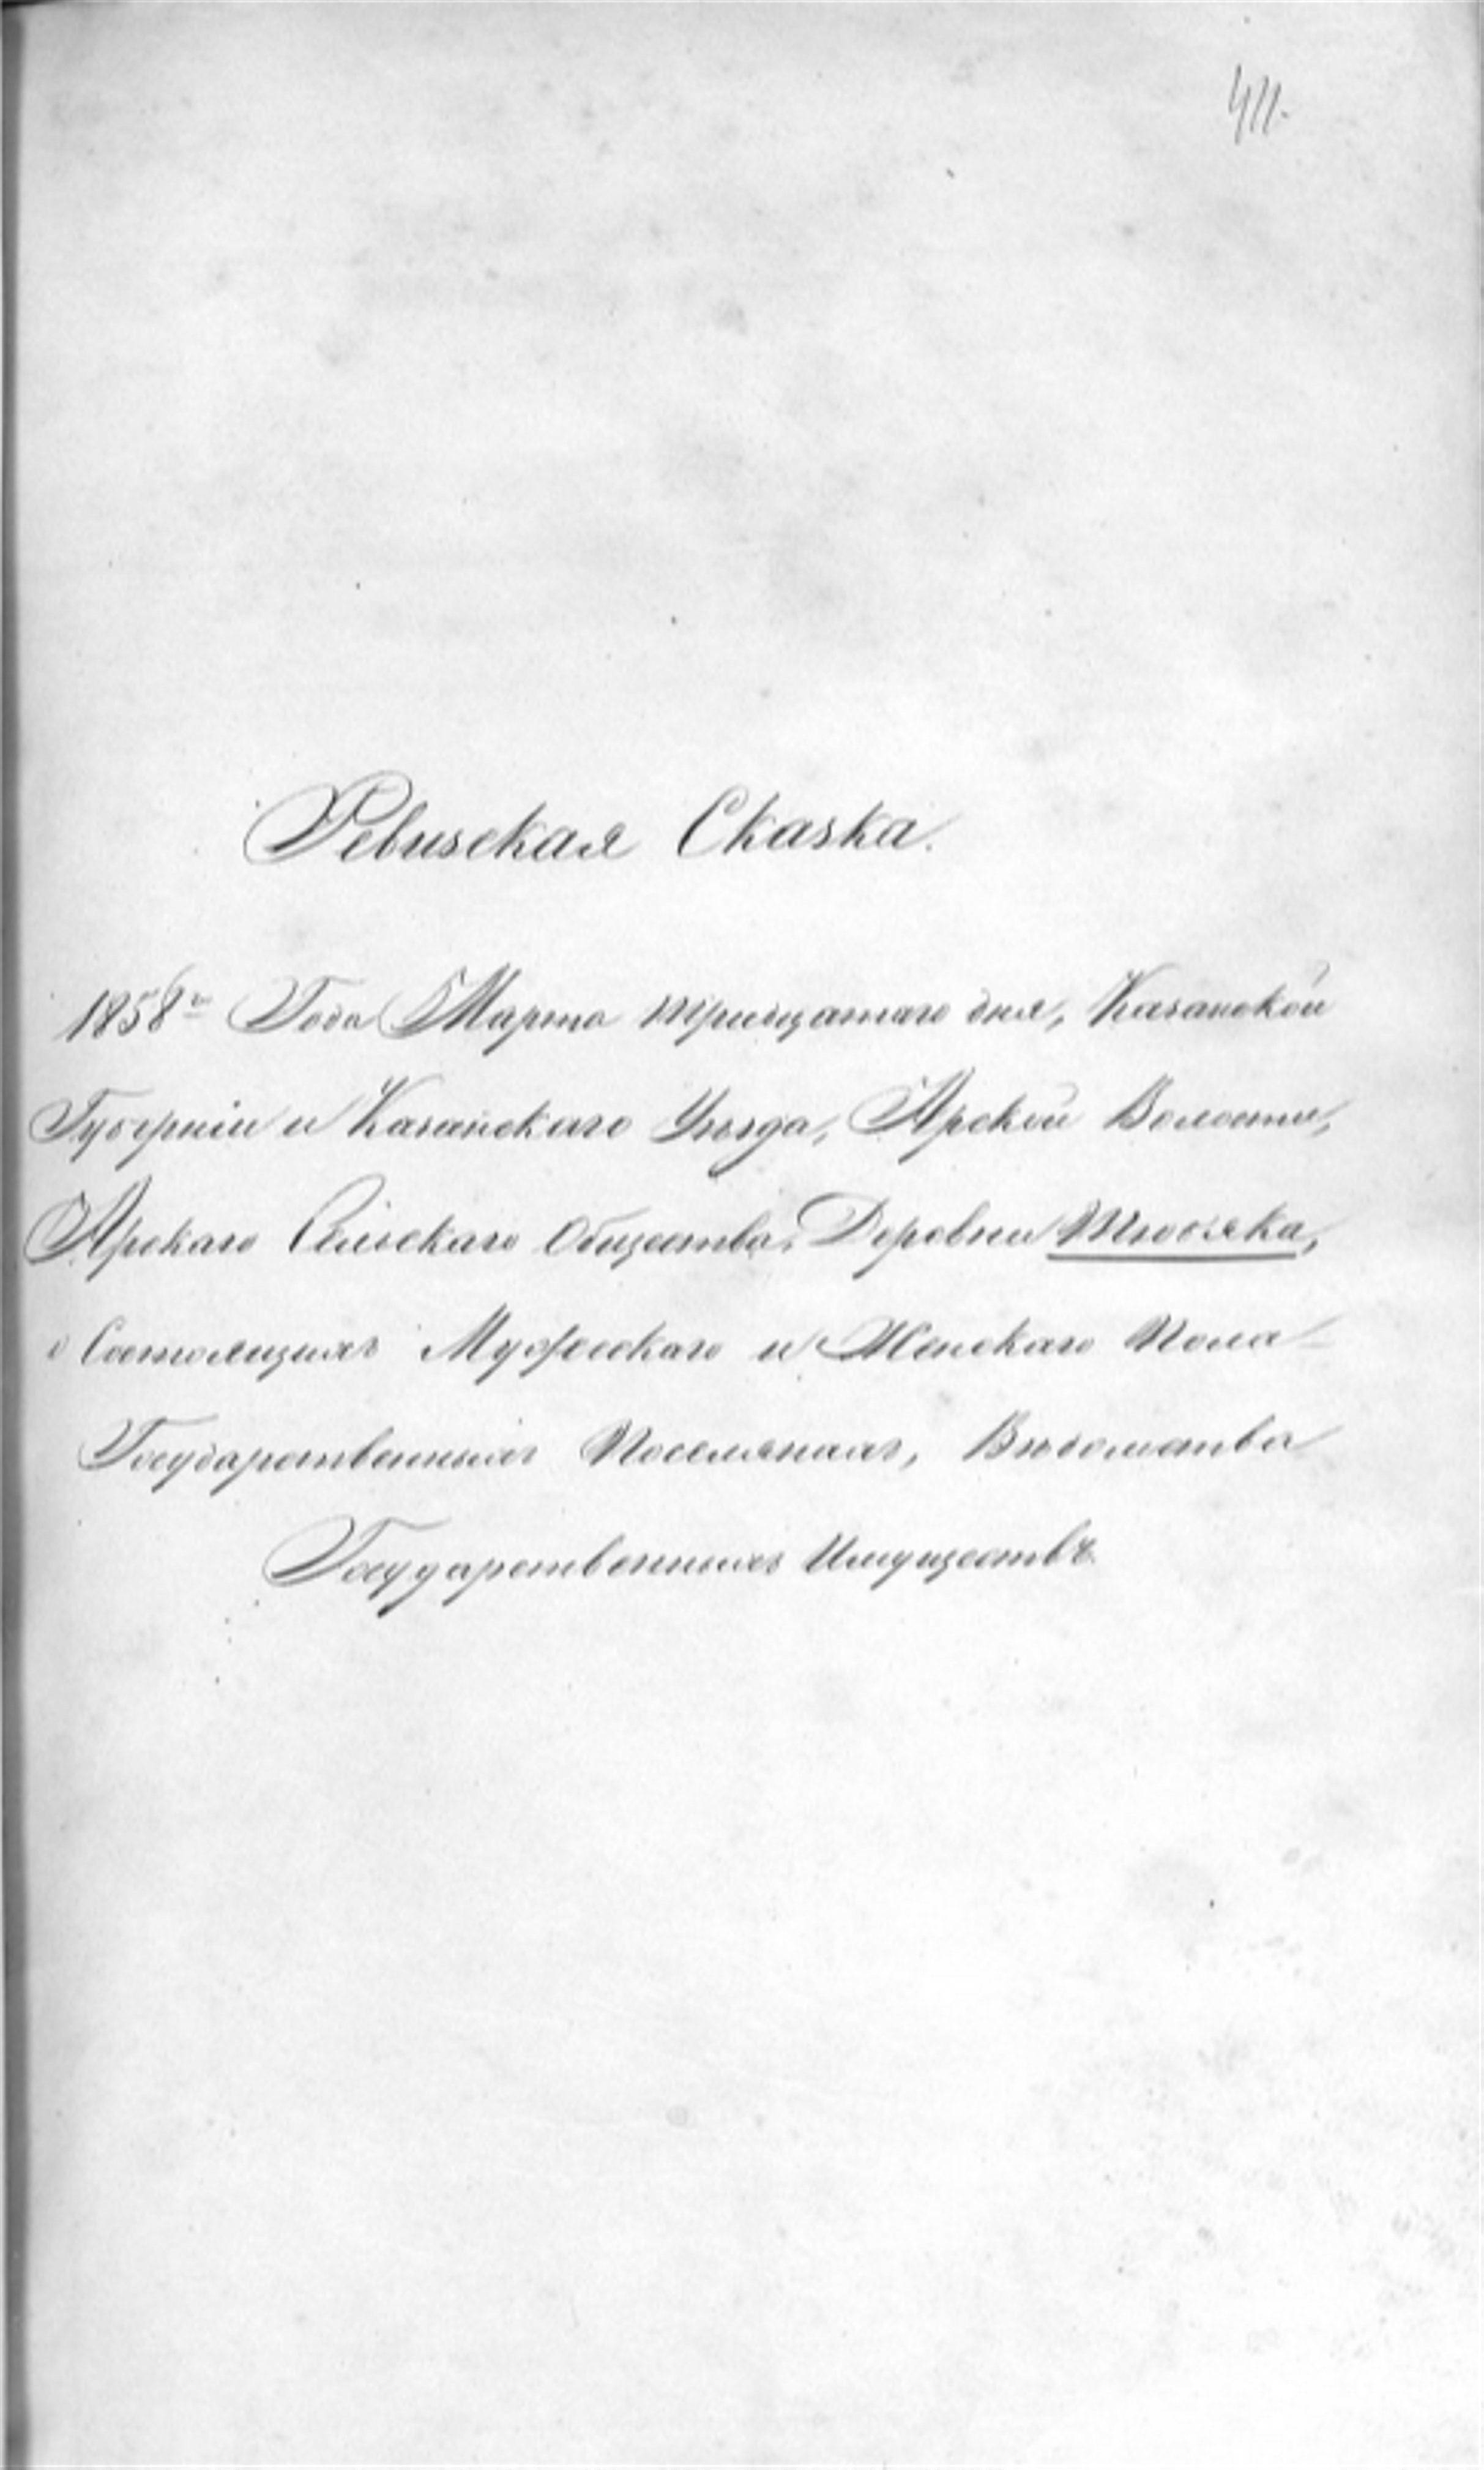 411.
Ревизская Сказка.
1858го Года Марта тридцатаго дня, Казанской
Губерніи и Казанскаго Уѣзда, Арской Волости,
Арскаго Сельскаго Общества, Деревни Тюбяка,
о Состоящихъ Мужескаго и Женскаго Пола
Государственныхъ Поселянахъ, Вѣдомства
Государственныхъ Имуществъ